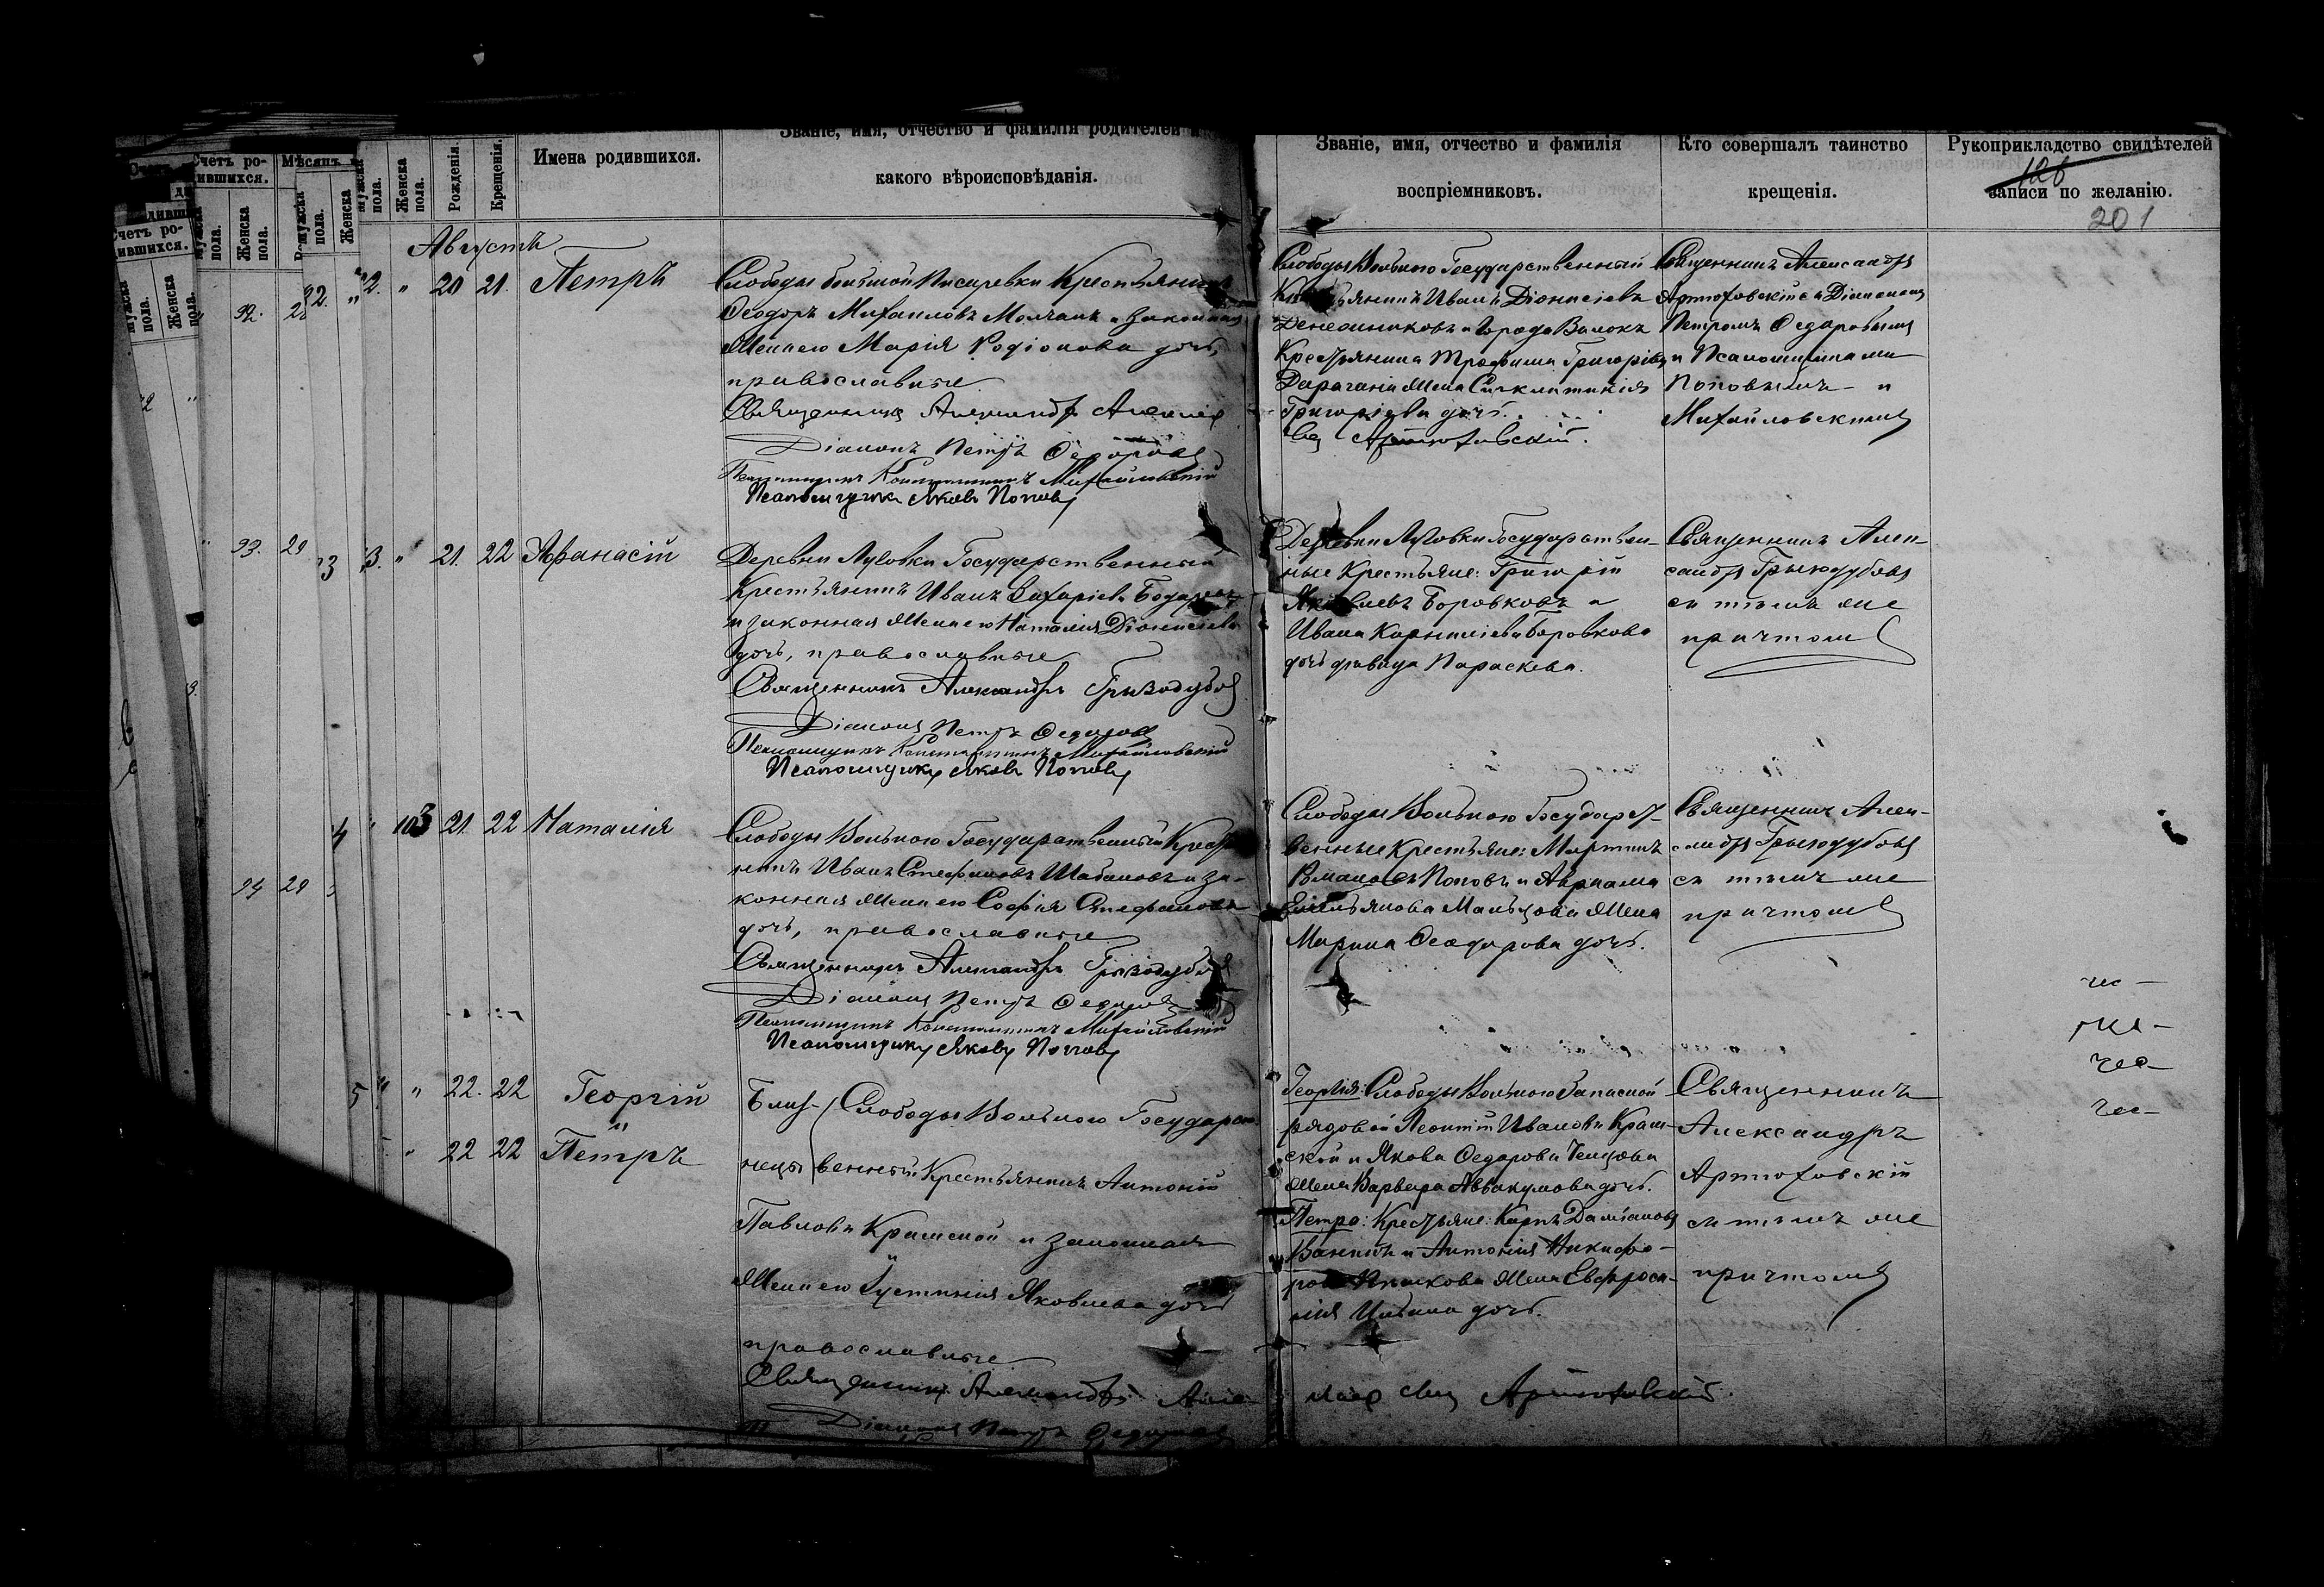 Званіе, имя, отчество и фамилія родителей и
какого вѣроисповѣданія.
Счетъ ро-
дившихся.
Мѣсяцъ
Мужска
пола.
Женска
пола.
Рожденія.
Крещенія.
Имена родившихся.
Званіе, имя, отчество и фамилія
воспріемниковъ.
Кто совершалъ таинство
крещенія.
Рукоприкладство свидѣтелей
записи по желанію.
201
Августъ
20 21. Петръ
Слободы большой Писаревки Крестьянинъ
Ѳеодоръ Михаиловъ Молчанъ и законная
жена его Марія Родіонова дочь,
православные.
Священникъ Александръ
Діаконъ Петръ Ѳедоровъ
Псаломщикъ Константинъ Михайловскій
Псаломщикъ Яковъ Поповъ
Слободы Вольного Государственный
Крестьянинъ Иванъ Діонисіевъ
и города Валокъ
Крестьянина Трофима Григоріева
жена Синклитикія
Григоріева дочь.
Свящ Артюховскій.
Священникъ Александръ
Артюховскій съ Діакономъ
Петромъ Ѳедоровымъ
и Псаломщиками
Поповымъ и
Михайловскимъ
21. 22 Афанасій
Деревни Луговки Государственный
Крестьянинъ Иванъ Захаріевъ
и законная жена его Наталія Діонисіева
дочь, православные
Священникъ Александръ Грызодубовъ
Діаконъ Петръ Ѳедоровъ
Псаломщикъ Константинъ Михайловскій
Псаломщикъ Яковъ Поповъ
Деревни Луговки Государствен-
ные Крестьяне: Григорій
Яковлевъ Боровковъ и
Ивана Корнилієва Боровкова
дочь дѣвица Параскева.
Священникъ Алек-
сандръ Грызодубовъ
съ тѣмъ же
причтомъ
103 21. 22 Наталія
Слободы Вольного Государственный Крестья
нинъ Иванъ Стефановъ Шабановъ и за-
конная жена его Софія Стефанова
дочь, православные
Священникъ Александръ Грызодубовъ
Діаконъ Петръ Ѳедоровъ
Псаломщикъ Константинъ Михайловскій
Псаломщикъ Яковъ Поповъ
Слободы Вольного Государст-
венные Крестьяне: Мартинъ
Романовъ Поповъ и Авраама
Емельянова Мальцова жена
Марина Ѳеодорова дочь.
Священникъ Алек-
сандръ Грызодубовъ
съ тѣмъ же
причтомъ
22. 22 Георгій
22 22 Петръ
Близ- Слободы Вольного Государст
нецы венный Крестьянинъ Антоній
Павловъ Крамской и законная
жена его Іустинія Яковлева дочь
православные
Священникъ Александръ
Діаконъ Петръ Ѳедоровъ
Георгія: Слободы Вольного Запасной
рядовой Леонтій Ивановъ Крам-
ской и Якова Ѳедорова
жена Варвара Аввакумова дочь.
Петра: Крестьяне: Карпъ Даміановъ
Ванинъ и Антонія Никифо-
рова жена Евфроси-
нія Ильина дочь.
Свящ Артюховскій.
Священникъ
Александръ
Артюховскій
съ тѣмъ же
причтомъ